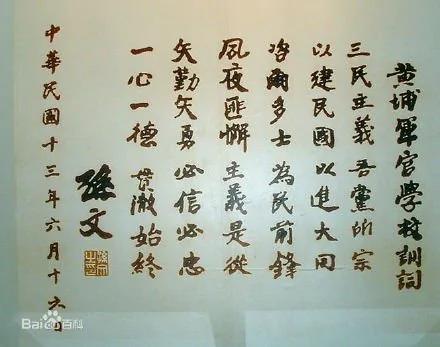 黃埔軍官學校訓詞
三民主義 吾黨所宗
以建民國 以進大同
咨爾多士 為民前鋒
夙夜匪懈 主義是從
矢勤矢勇 必信必忠
一心一德 貫澈始終
孫文
孫文之印
中華民國十三年六月十六日
Bai百科